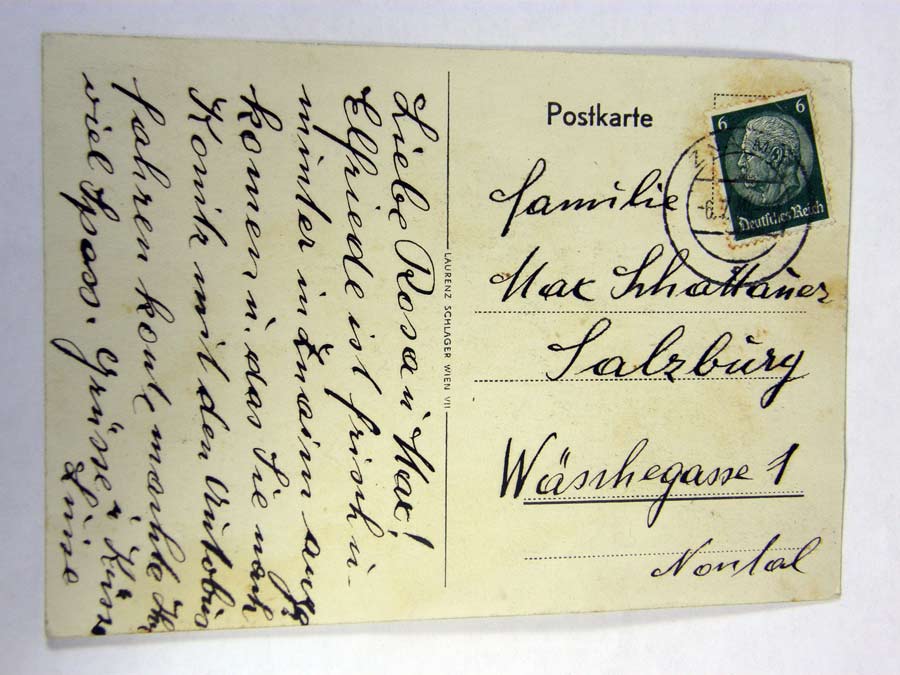 Postkarte
6 6
Deutsches Reich
-6.
Familie
Max Schattauer
Salzburg
Wäschegasse 1
Nontal
LAURENZ SCHLAGER WIEN VII
Liebe Rosa u Max!
Elfriede ist frisch u
munter in Znaim ange
komen u. das Sie nach
Konitz mit den Autobus
fahren konte machte Ihr
viel Spass. Grüsse u Küsse
Luise